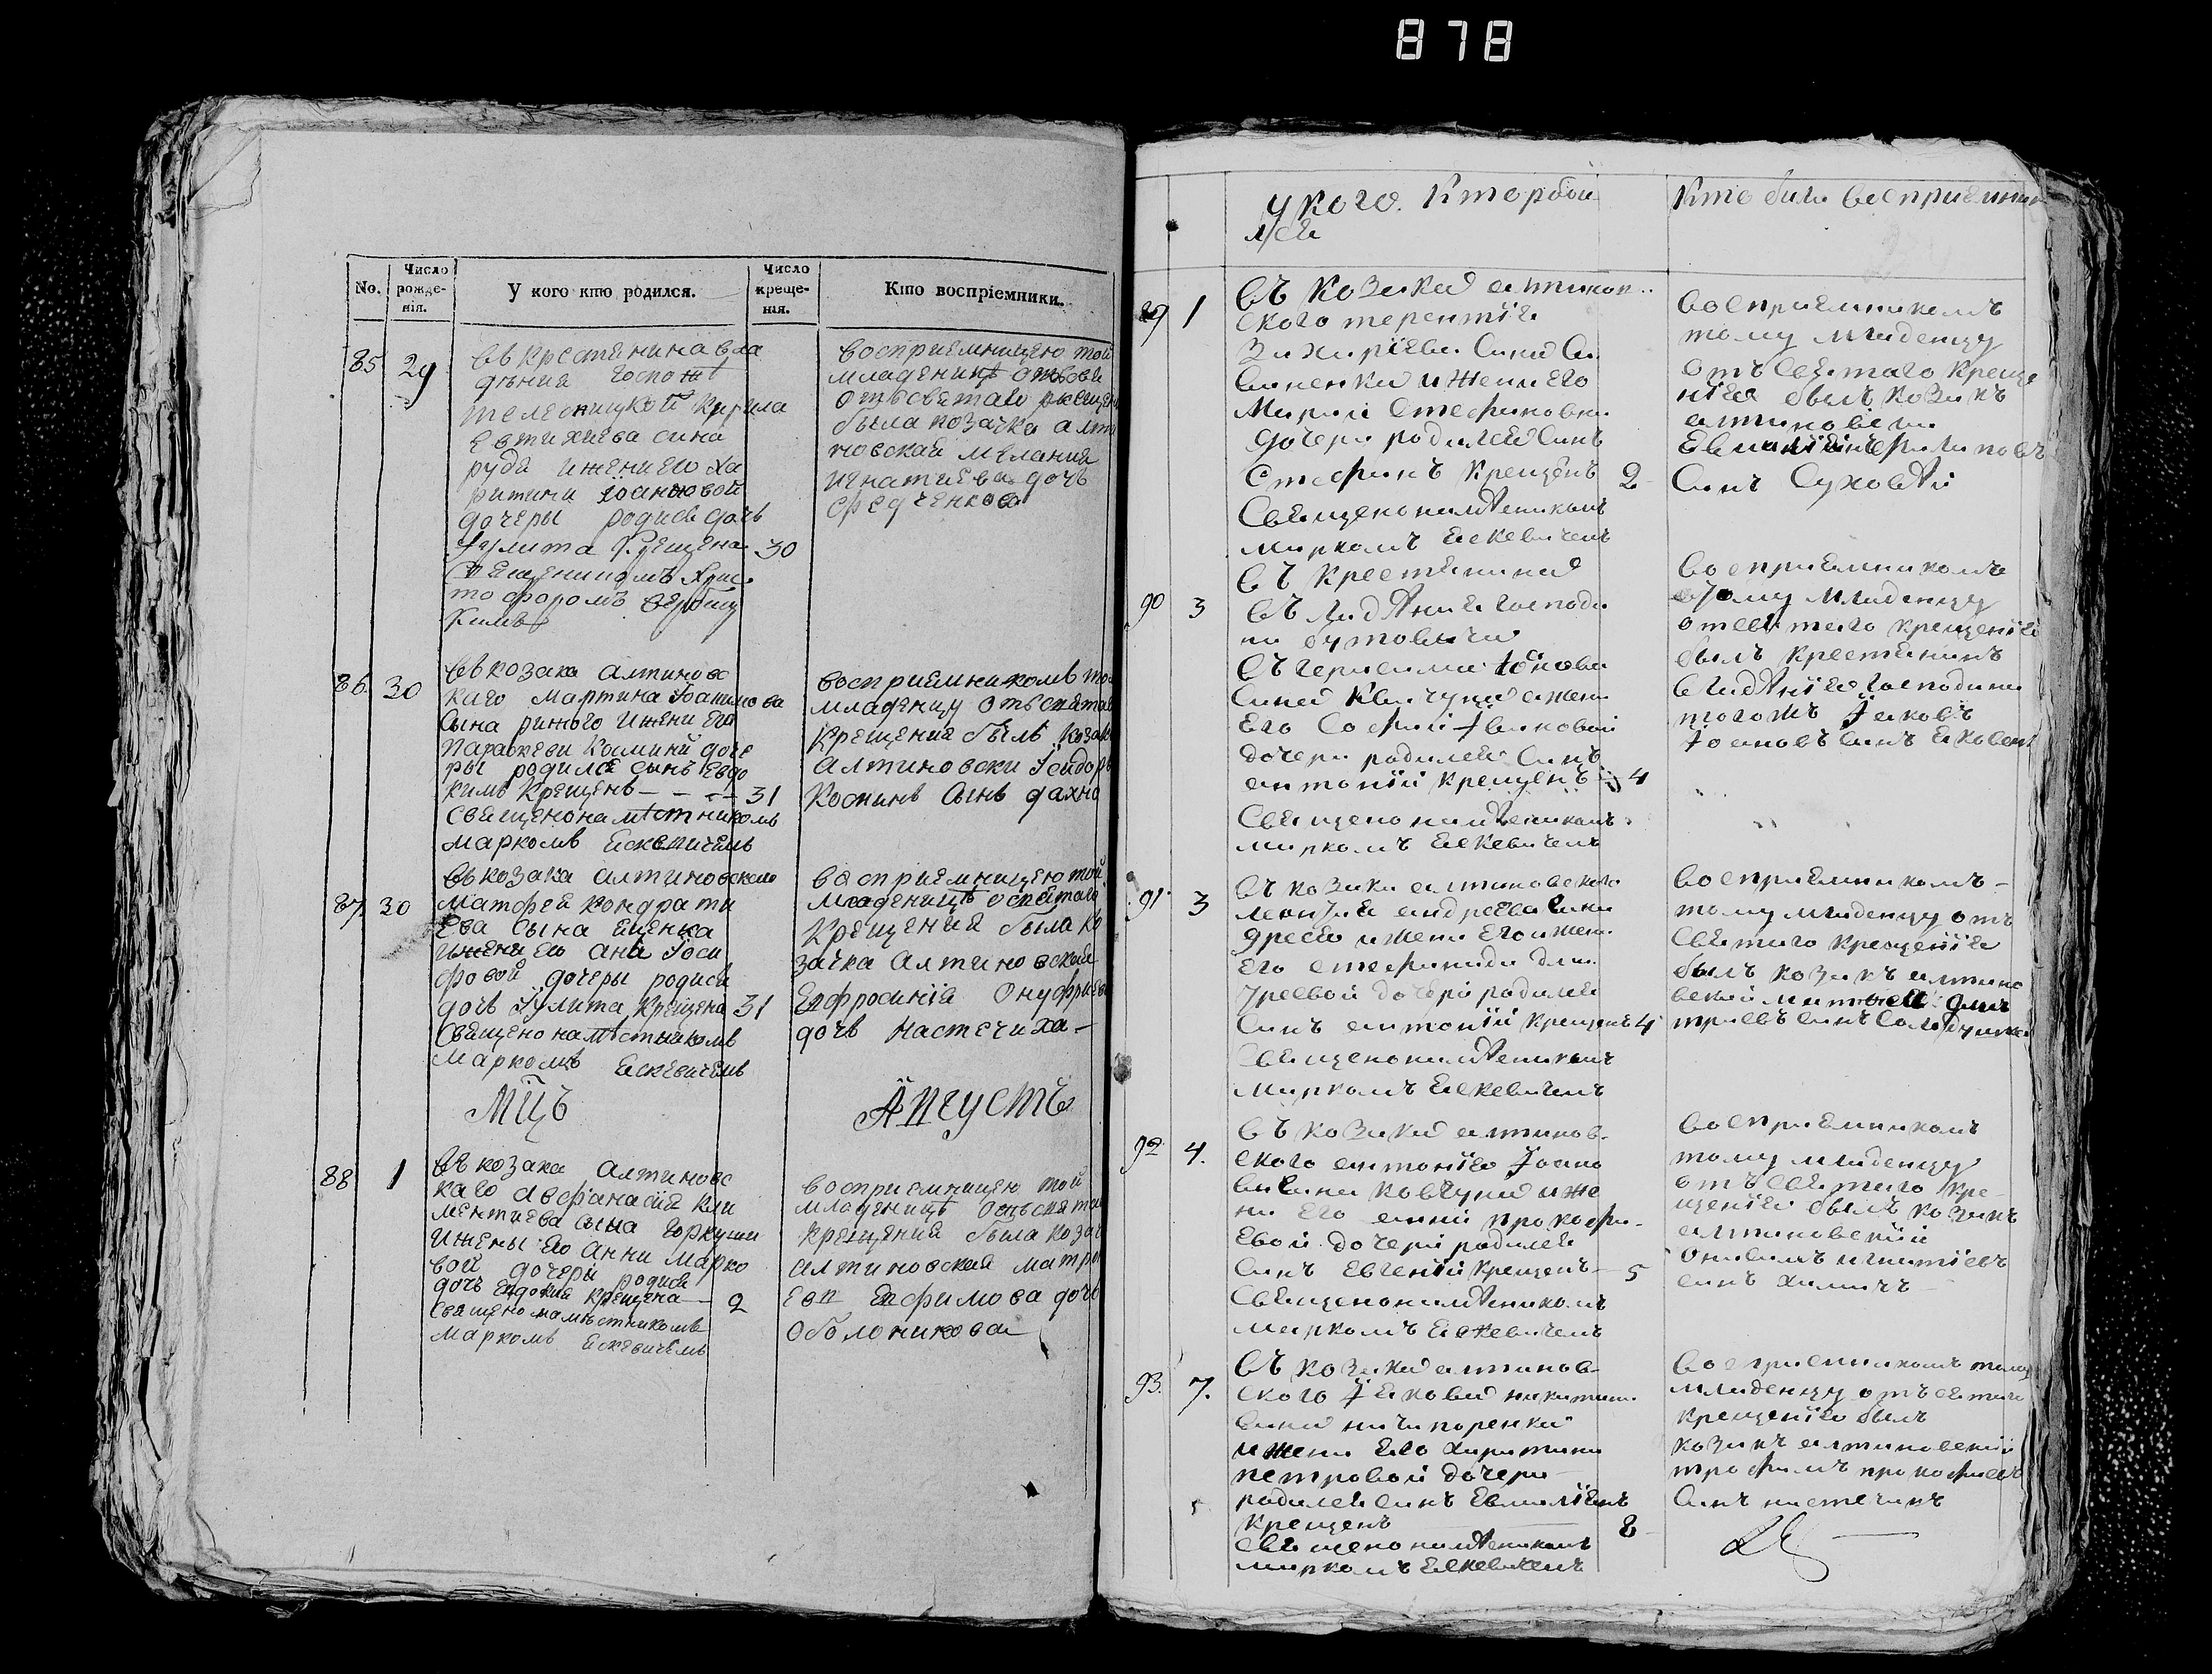 878
No.
Число рожде- нія.
У кого кто родился.
Число креще- нія.
Кто воспріемники.
85 29
въ крестенина вла
дѣния Госпо
телесницкой кирила
Евтихиева сина
руда иженыего ха
ритини Іоанновой
дочеры родися дочь
Іулита Крещена 30
Священикомъ Хрис
тофоромъ
восприемницею той
младеницѣ
была козачка алти
новская мелания
игнатиева дочь
федченкова
86. 30
въ козака алтиновс
каго мартина Іоакимова
сына рижого ижени его
параскеви космини доче
ры родился сынъ Евдо
кимъ Крещенъ - - - 31
Священонамѣстникомъ
маркомъ Ескевичемъ
восприемникомъ то
младенцу отъсвятаг
крещения былъ козак
алтиновски Ісидоръ
Космінъ сынъ дахно
87 30
въ козака алтиновскаго
матфей кондрати
ева сына Ященка
ижени его ана Іоси
фовой дочеры родися
дочь Іулита Крещена 31
Священонамѣстникомъ
маркомъ Ескевичемъ
восприемницею той
младеницѣ
крещения была ко
зачка алтиновская
Евфросинія Онуфриев
дочь настечиха -
Мцъ Августъ
88 1
въ козака алтиновс
каго Афанасия Кли
ментиева сына
ижены его анни марко
вой дочери родися
дочь Евдокия крещена 2
священонамѣстникомъ
маркомъ Ескевичемъ
восприемницею той
младеницѣ
крещения была козач
алтиновская матро
Ефимова дочь
оболоникова
У кого. Кто роди
лся
Кто били восприемник
89 1
въ козака алтинов
ского терентія
Захаріева сина
ижени его
марии стефановни
дочери родился синъ
Стефанъ крещенъ 2
Священонамѣстникомъ
маркомъ Ескевичемъ
восприемникомъ
тому младенцу
отъ святаго креще
нія былъ козакъ
алтиновски
филиповъ
синъ Суховѣй
90 3
въ крестенина
въ владѣния господи
на бутовича
сина ижени
его Софии Івановой
дочери родился синъ
антоній крещенъ 4
Священонамѣстникомъ
маркомъ Ескевичемъ
восприемникомъ
тому младенцу
отсвятаго крещенія
былъ крестенинъ
владѣнія господина
тогожъ Іаковъ
91. 3
въ козака алтиновского
андреева сина
ижени его ижени
его стефаниди дми
тревой дочері родился
синъ антоній крещенъ 4
Священонамѣстникомъ
маркомъ Ескевичемъ
восприемникомъ -
тому младенцу отъ
святаго крещенія
былъ козакъ алтино
вский матфей дми
триевъ синъ
92 4.
въ козака алтинов-
ского антонія Іоано
ва сина ковтуна иже
ни его анни прокофи-
евой дочері родился
синъ Евгеній крещенъ - 5
Священонамѣстникомъ
маркомъ Ескевичемъ
восприемникомъ
тому младенцу
отъ святаго кре-
щенія былъ козакъ
алтиновскій
онисимъ игнатіевъ
синъ химичъ
93. 7.
въ козака алтинов-
ского Іакова никитина
сина ничипоренка
ижени его харитини
петровой дочери
родился синъ Евмлніянъ
крещенъ 8
священонамѣстникомъ
маркомъ Ескевичемъ
восприемникомъ тому
младенцу отъ святаго
крещенія былъ
козакъ алтиновскій
трофимъ прокофиевъ
синъ настечинъ